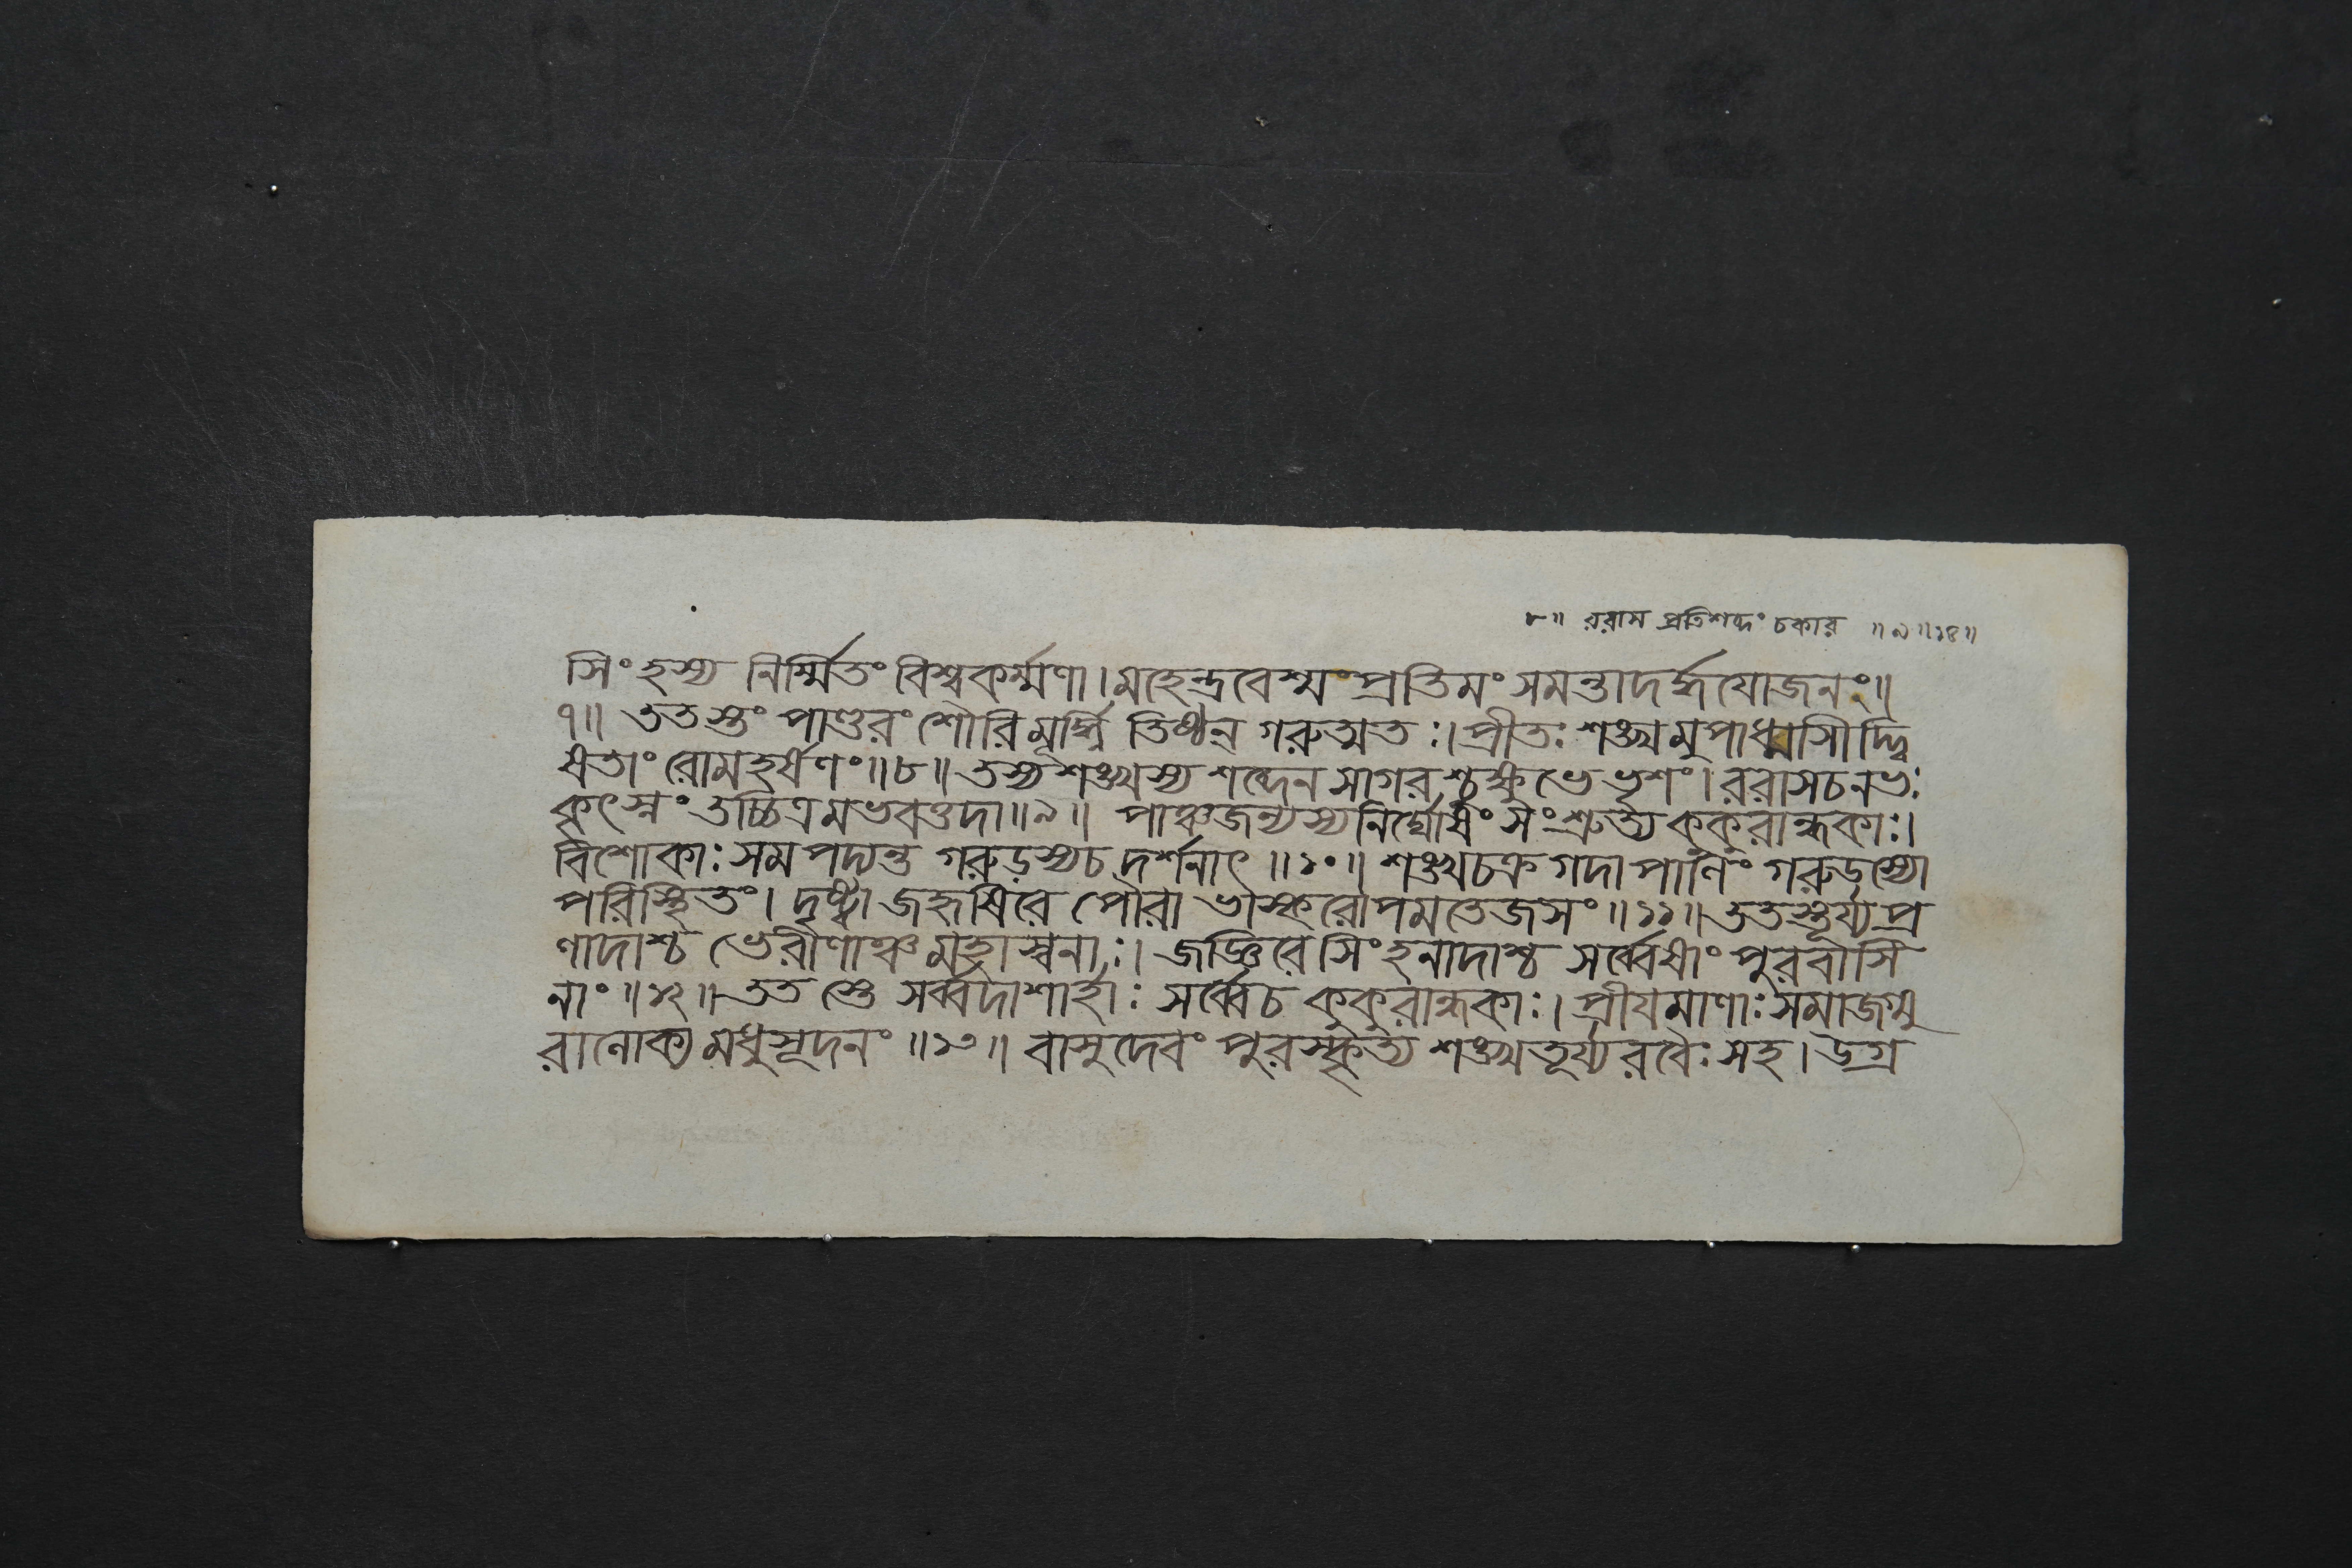 ৮॥ ররাস প্রতিশব্দং চকার ॥৯॥১৪॥
সিংহস্য নির্ম্মিতং বিশ্বকর্ম্মণা। মহেন্দ্রবেশ্মংপ্রতিমং সমন্তাদর্দ্ধযোজনং॥
৭॥ ততস্তং পাণ্ডরং শৌরিমূর্দ্ধ্নি তিষ্ঠন্ গরুত্মতঃ। প্রীতঃ শঙ্খমুপাধ্মাসীদ্দ্বি
ষতাং রোমহর্ষণং॥৮॥ তস্য শঙ্খস্য শব্দেন সাগরশ্চুক্ষুভে ভৃশং। ররাসচনভঃ
কৃৎস্নং তচ্চিত্রমভবত্তদা॥৯॥ পাঞ্চজন্যস্যনির্ঘোষং সংশ্রুত্য কুকুরান্ধকাঃ।
বিশোকাঃ সমপদ্যন্ত গরুড়স্যচ দর্শনাৎ॥১০॥ শঙ্খচক্রগদাপাণিং গরুড়স্যো
পরিস্থিতং। দৃষ্ট্বা জহৃষিরে পৌরা ভাস্করোপমতেজসং॥১১॥ ততস্তূর্য্যপ্র
ণাদাশ্চ ভেরীণাঞ্চ মহাস্বনাঃ। জজ্ঞিরে সিংহনাদাশ্চ সর্ব্বেষাং পুরবাসি
নাং॥১২॥ তত স্তে সর্ব্বদাশার্হাঃ সর্ব্বেচ কুকুরান্ধকাঃ। প্রীযমাণাঃ সমাজগ্মু
রালোক্য মধুসূদনং॥১৩॥ বাসুদেবং পুরস্কৃত্য শঙ্খতূর্য্যরবৈঃ সহ। উগ্র